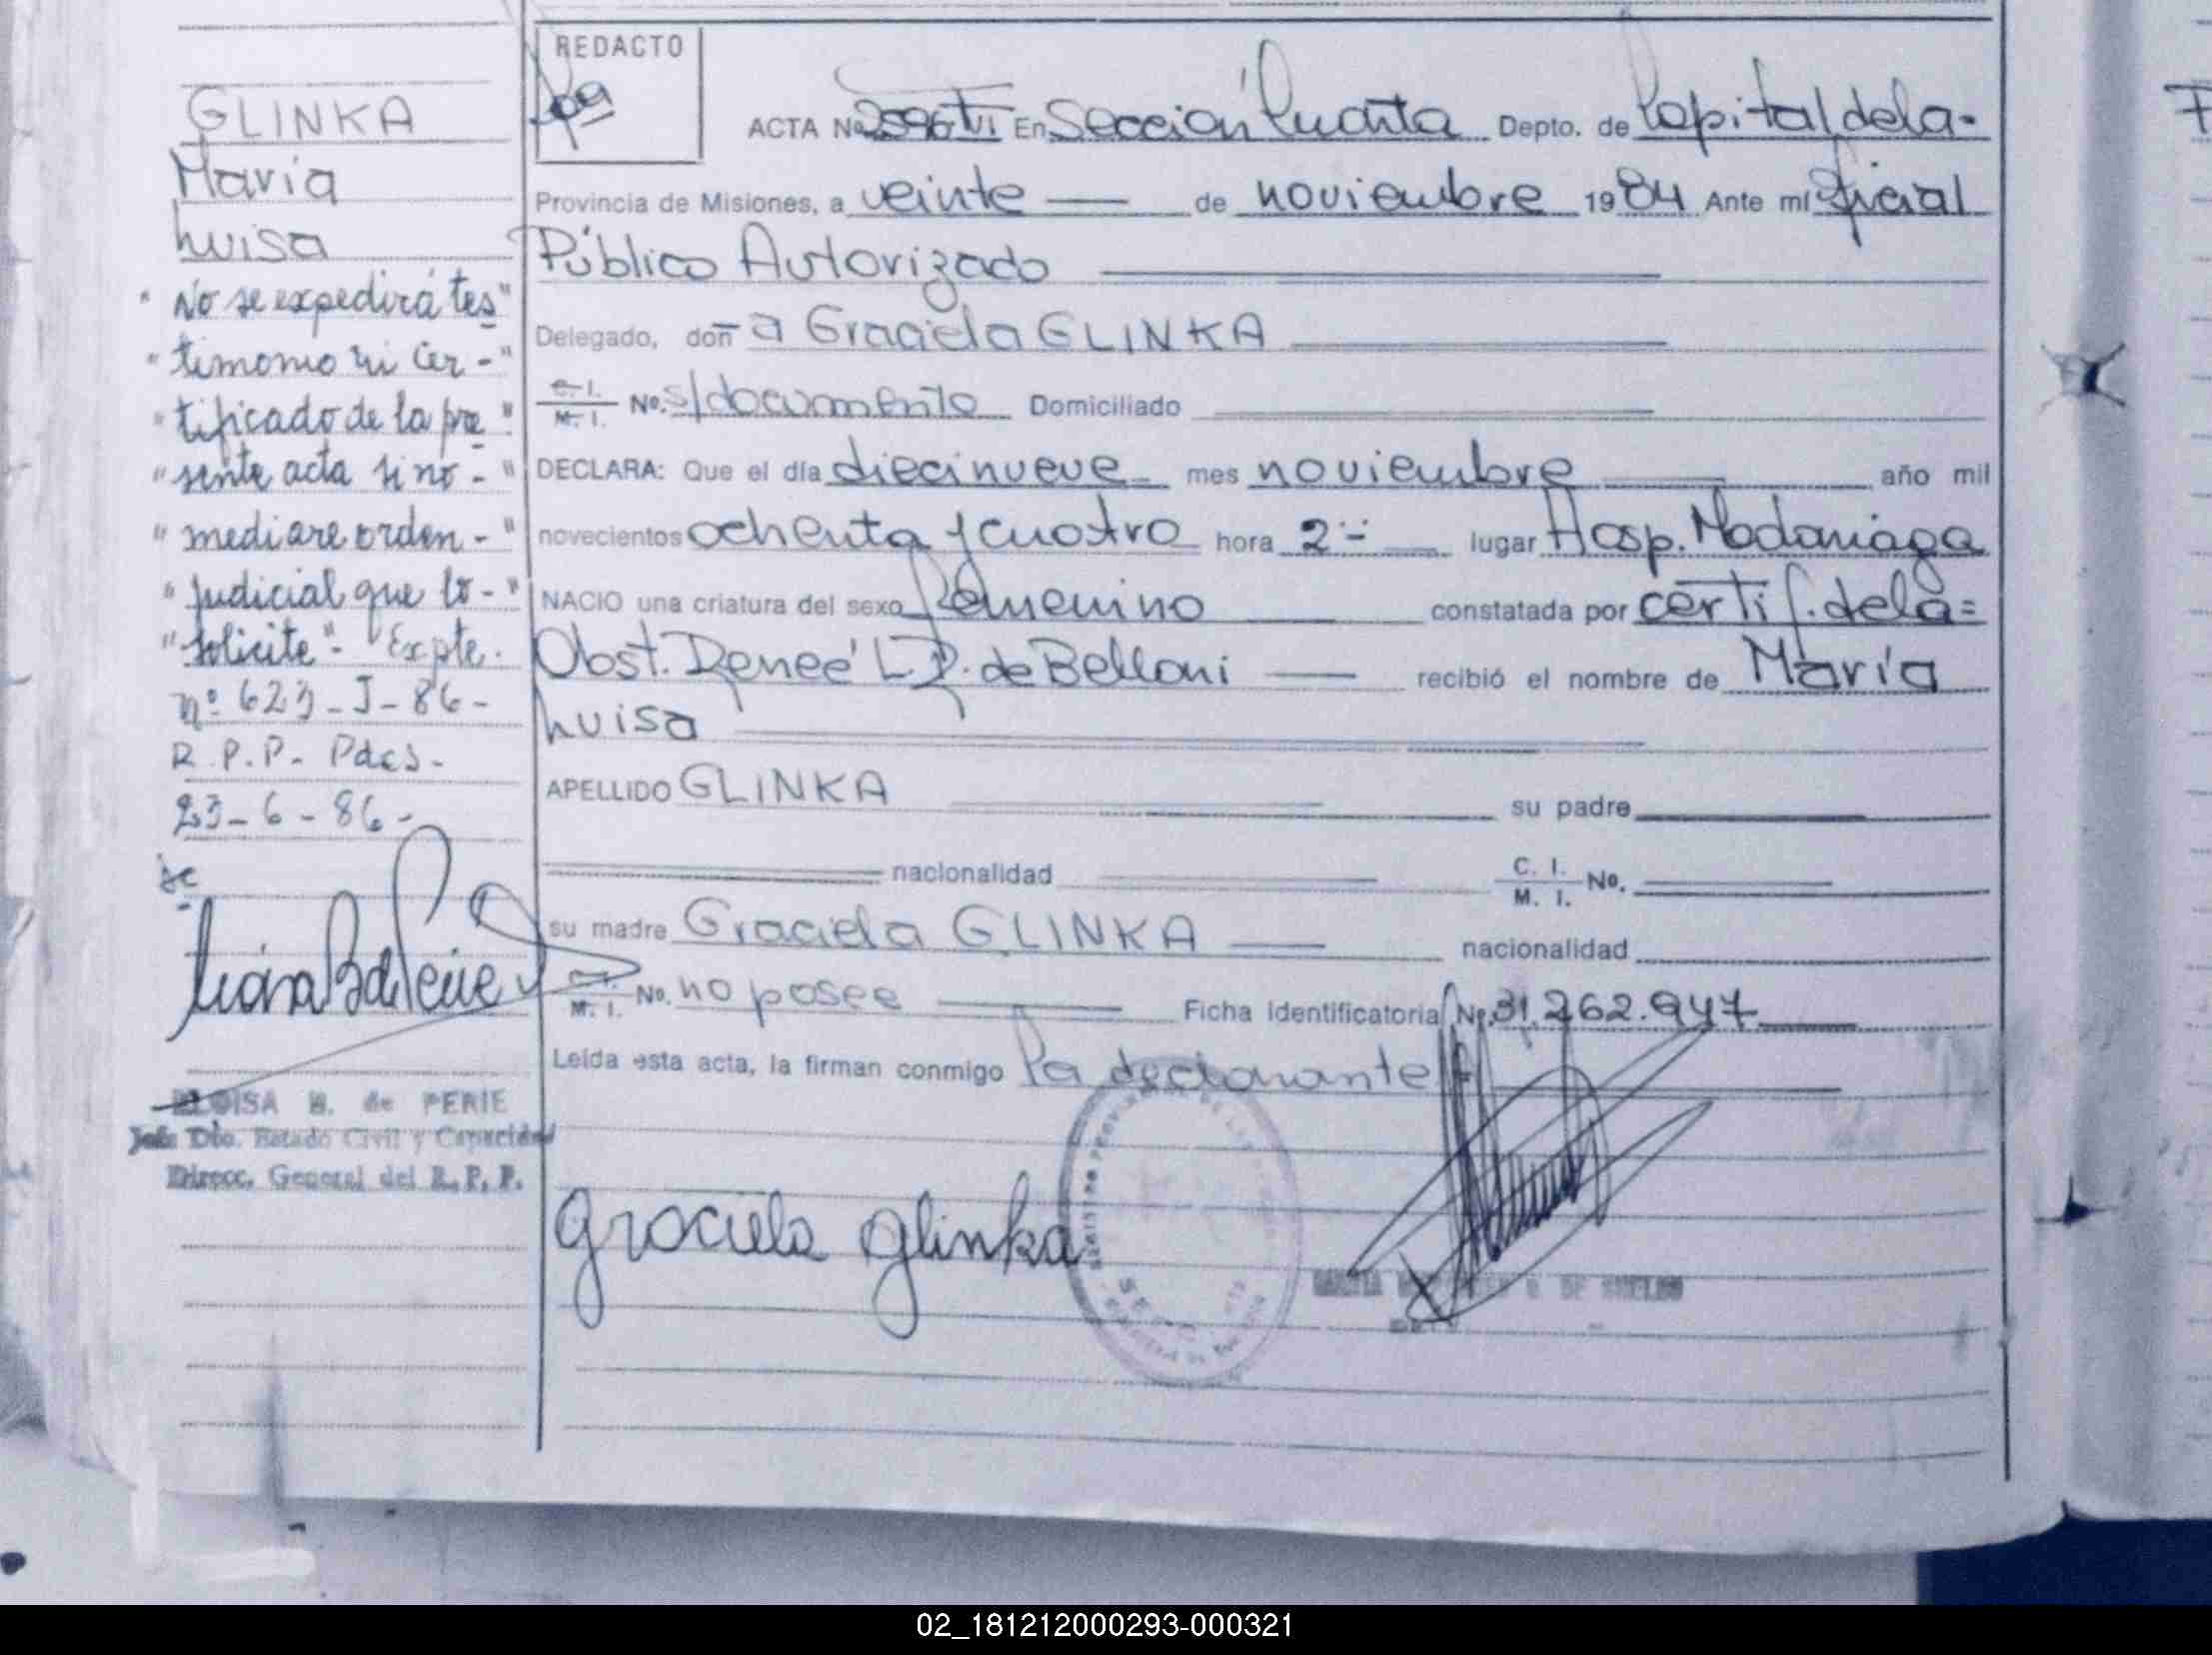 GLINKA
María
Luisa
"No se expedirá tes"
"timonio ni cer-"
"tificado de la pre"
"sente acta si no-"
"mediare orden-"
"judicial que lo-"
"solicite"- Expte.
nº 623-J-86-
R.P.P. Pdas-
23-6-86-
ELOISA B. de PERIE
Jefe Dto. Estado Civil y Capacidad
Direcc. General del R. P. P.
REDACTO
ACTA No. 2596 T VI En Sección Cuarta Depto. de Capital dela-
Provincia de Misiones, a veinte de noviembre 1984 Ante mí Oficial
Público Autorizado
Delegado, don a Graciela GLINKA
C. I. M. I. No. s/documento Domiciliado
DECLARA: Que el día diecinueve mes noviembre año mil
novecientos ochenta y cuatro hora 2- lugar Hosp. Madariaga
NACIO una criatura del sexo femenino constatada por certif. dela=
Obst. Reneé L.P. de Belloni recibió el nombre de María
Luisa
APELLIDO GLINKA su padre
nacionalidad C. I. M. I. No.
su madre Graciela GLINKA nacionalidad
C. I. M. I. No. no posee Ficha identificatoria No. 31.262.947
Leída esta acta, la firman conmigo la declarante
Graciela Glinka
02_181212000293-000321